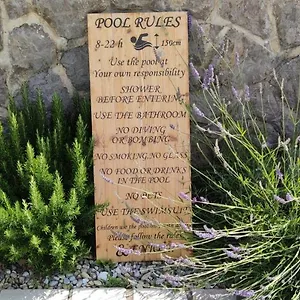 POOL RULES
8-22h 150cm
Use the pool at
Your own responsibility
SHOWER
BEFORE ENTERING
USE THE BATHROOM
NO DIVING
OR BOMBING
NO SMOKING, NO GLASS
NO FOOD OR DRINKS
IN THE POOL
NO PETS
USE THE SWIMSUIT
Children use the pool with
Please follow the rules